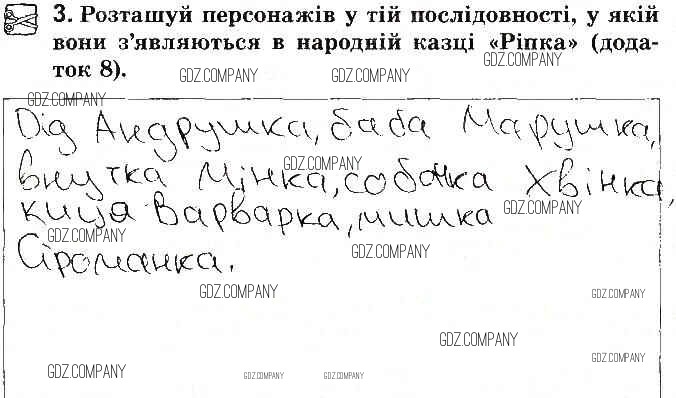 3. Розташуй персонажів у тій послідовності, у якій
вони з'являються в народній казці «Ріпка» (дода-
ток 8).
GDZ.COMPANY
GDZ.COMPANY
GDZ.COMPANY
GDZ.COMPANY
Дід Андрушка, баба Марушка,
GDZ.COMPANY
внучка Мінка, собачка Хвінка,
киця Варварка, мишка
GDZ.COMPANY
GDZ.COMPANY
GDZ.COMPANY
Сіроманка.
GDZ.COMPANY
GDZ.COMPANY
GDZ.COMPANY
GDZ.COMPANY
GDZ.COMPANY
GDZ.COMPANY
GDZ.COMPANY